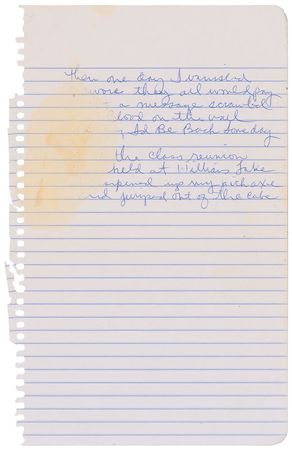 Then one day I vanished
swore they all would pay
a message scrawled
Blood on the wall
I'd Be Back Someday
the class reunion
held at Williams Lake
opened up my pickaxe
and jumped out of the cake